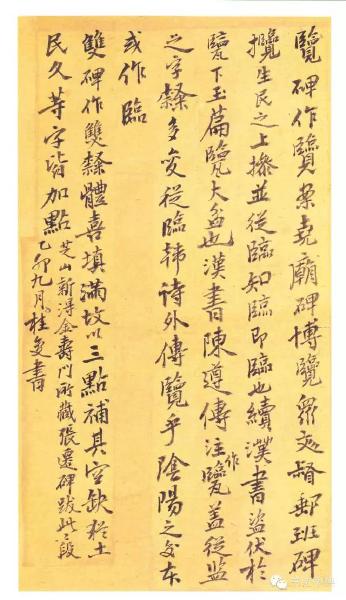 覽碑作覽案堯廟碑博覽羣英督郵班碑
攬生民之上操並從臨知臨即臨也續漢書盜伏於
㽉下玉篇㽉大盆也漢書陳遵傳注作㽉盖從監
之字隸多变從臨韩诗外傳覽乎陰陽之交本
或作臨
雙碑作雙隸體喜填滿故以三點補其空缺猶土
民久等字皆加點 芝山新淂金壽門所藏張遷碑跋此二段
乙卯九月桂复書